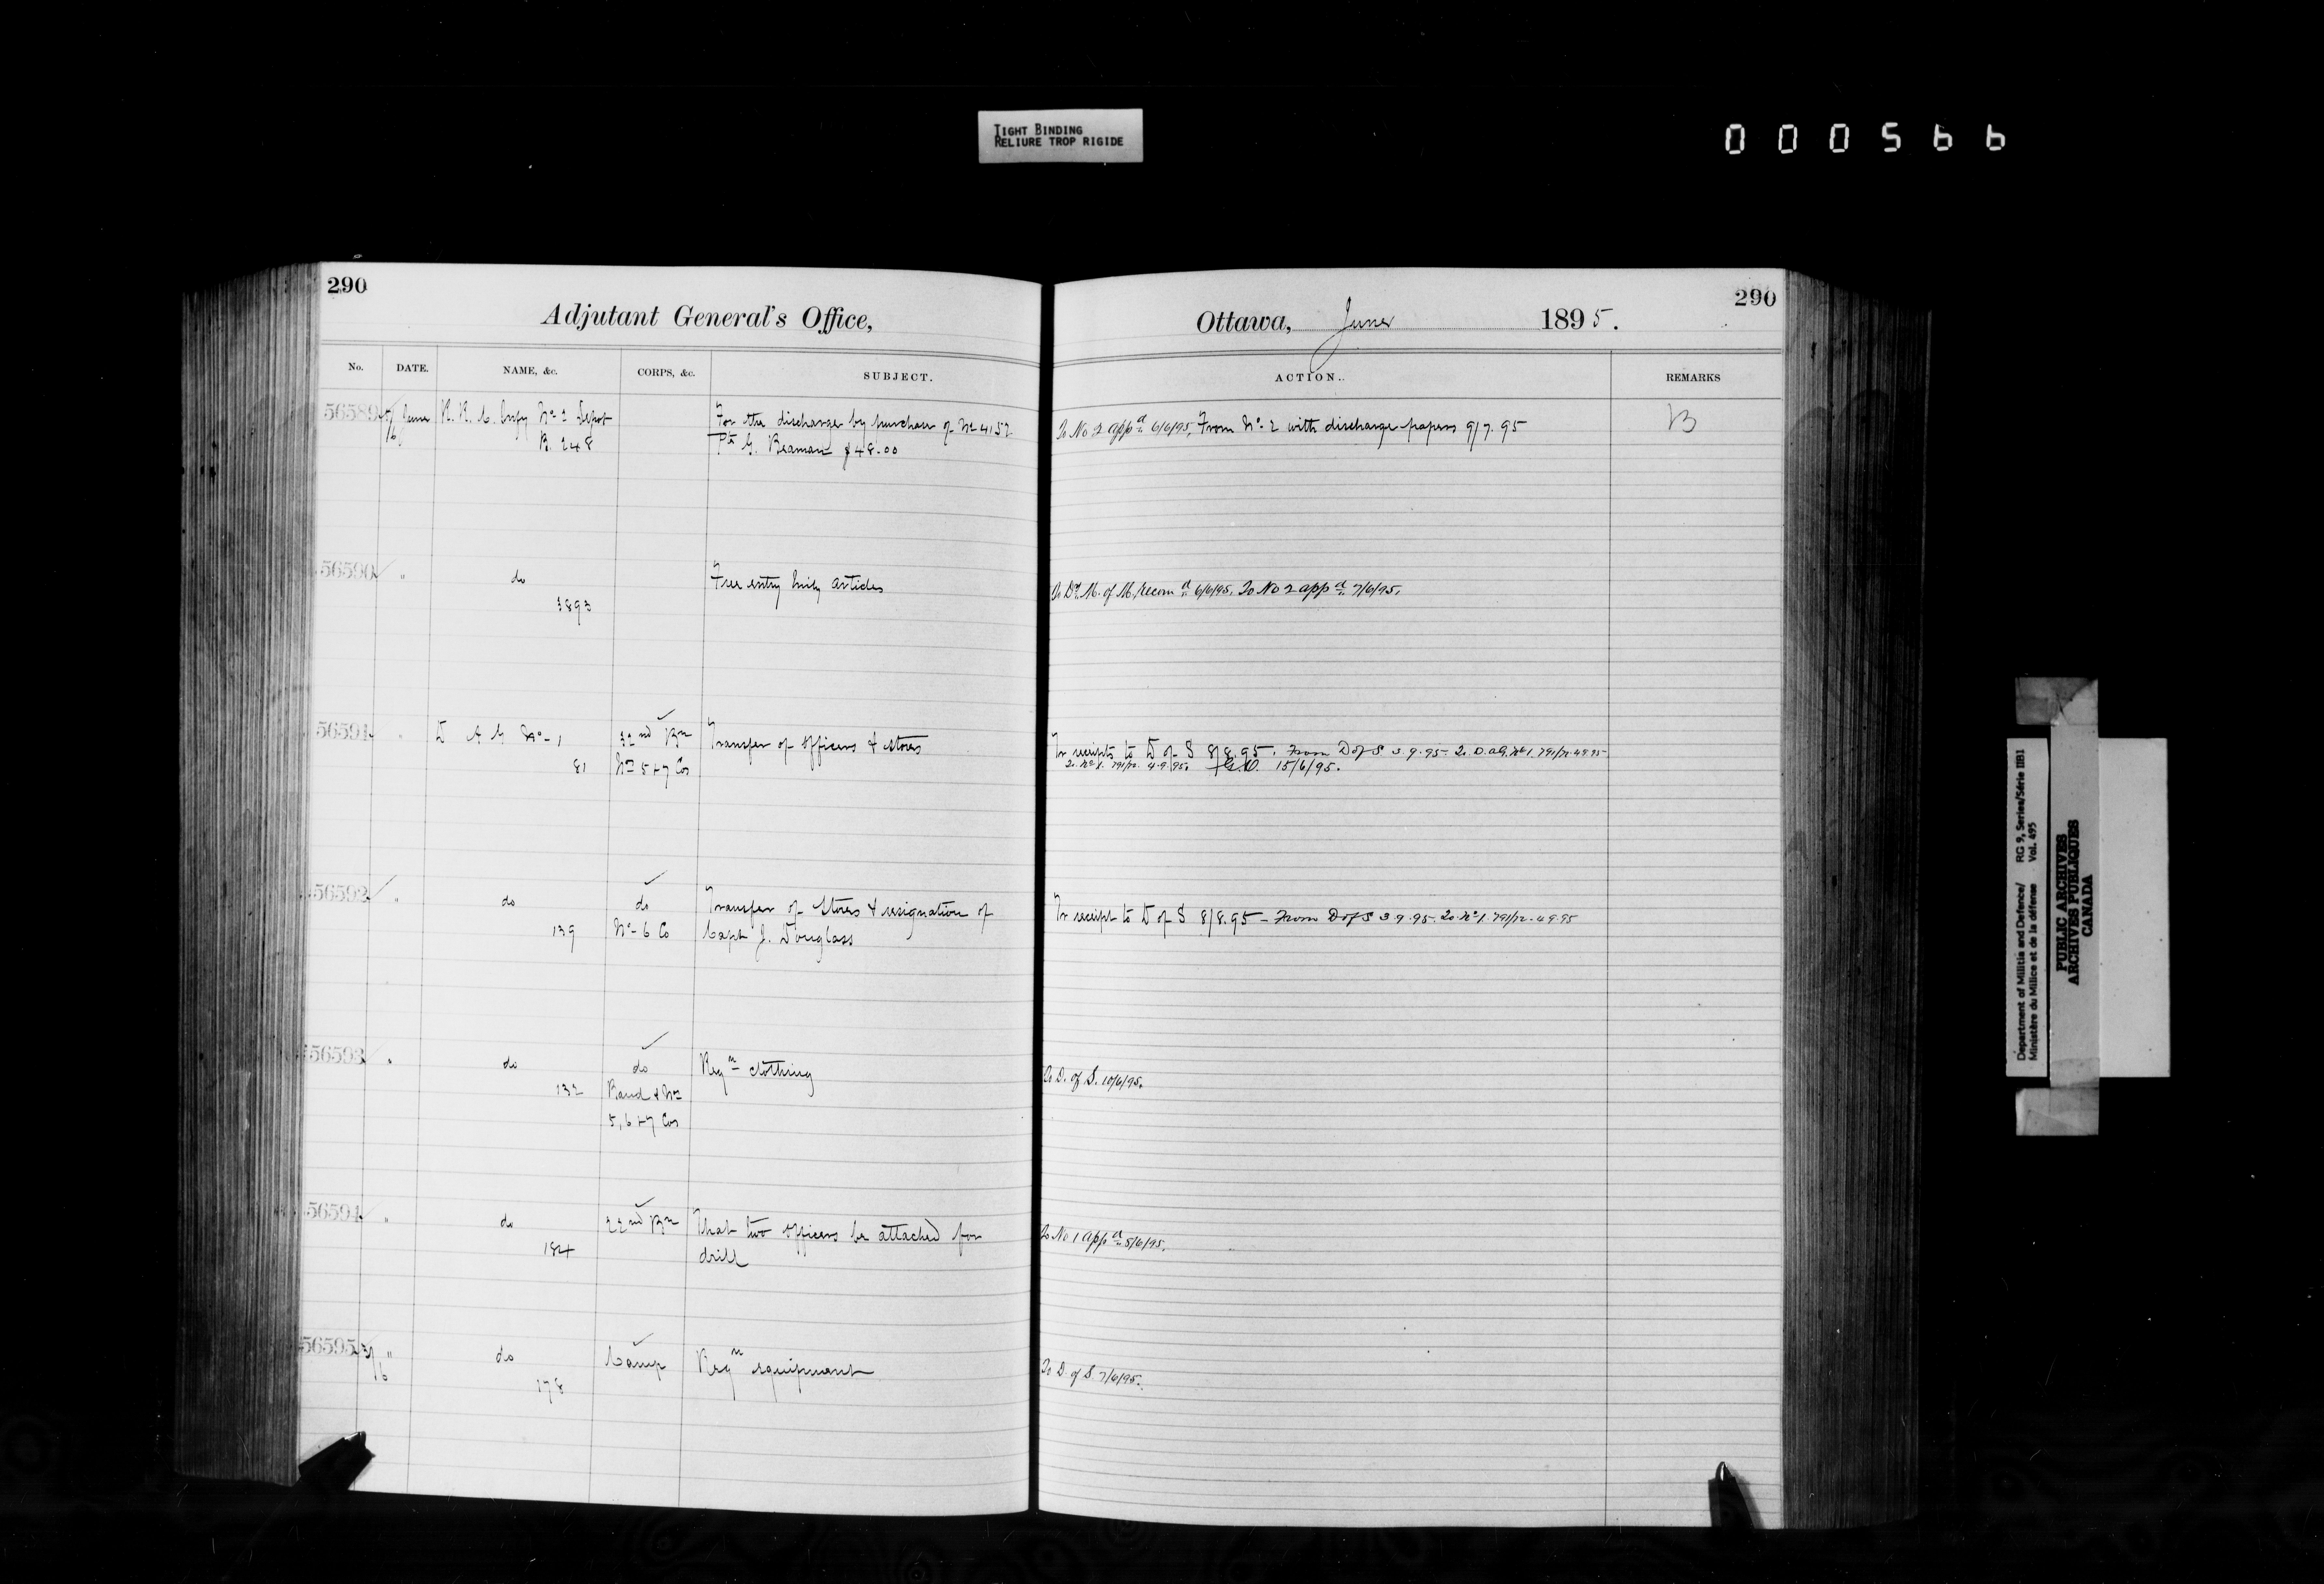 TIGHT BINDING
RELIURE TROP RIGIDE
000566
290
Adjutant General's Office,
No. DATE. NAME, &c. CORPS, &c. SUBJECT.
56589 June R. R. C. Infy No 2 Depot For the discharge by purchase of No 4152
R. 248 Pte G. Beaman $48.00
56590 " do Free entry Mily articles
3893
56591 " D A G No 1 32nd Bn Transfer of officers & stores
81 Nos 5 & 7 Cos
56592 " do do Transfer of stores & resignation of
139 No 6 Co Capt J. Douglass
56593 " do do Reqn clothing
132 Band & Nos
5, 6 & 7 Cos
56594 " do 22nd Bn That two officers be attached for
184 drill
56595 3/6 " do Camp Reqn equipment
178
290
Ottawa, June 1895.
ACTION. REMARKS
To No 2 appd 6/6/95. From No 2 with discharge papers 9/7.95 B
To Dt. M. of M. recomd 6/6/95. To No 2 appd 7/6/95.
Tr receipts to D of S 8/8.95. From D of S 3.9.95. To D.A.G. No 1.
4.9.95. G.O. 15/6/95.
Tr receipt to D of S 8/8.95 - From D of S 3.9.95. To No 1. 4.9.95
To D. of S. 10/6/95.
To No 1 appd 5/6/95.
To D. of S. 7/6/95.
Department of Militia and Defence/ RG 9, Series/Série IIB1
Ministère du Milice et de la défense Vol. 495
PUBLIC ARCHIVES
ARCHIVES PUBLIQUES
CANADA